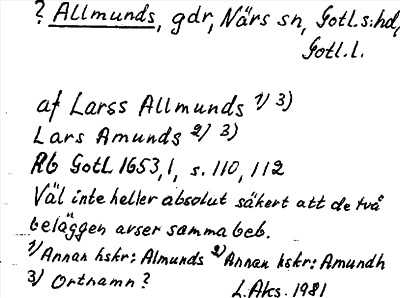 ? Allmunds, gdr, Närs sn, Gotl.s:hd,
Gotl.l.
af Larss Allmunds 1) 3)
Lars Amunds 2) 3)
Rb Gotl 1653,1, s. 110, 112
Väl inte heller absolut säkert att de två
beläggen avser samma beb.
1) Annan hskr: Almunds 2) Annan hskr: Amundh
3) Ortnamn?
L.Aks. 1981